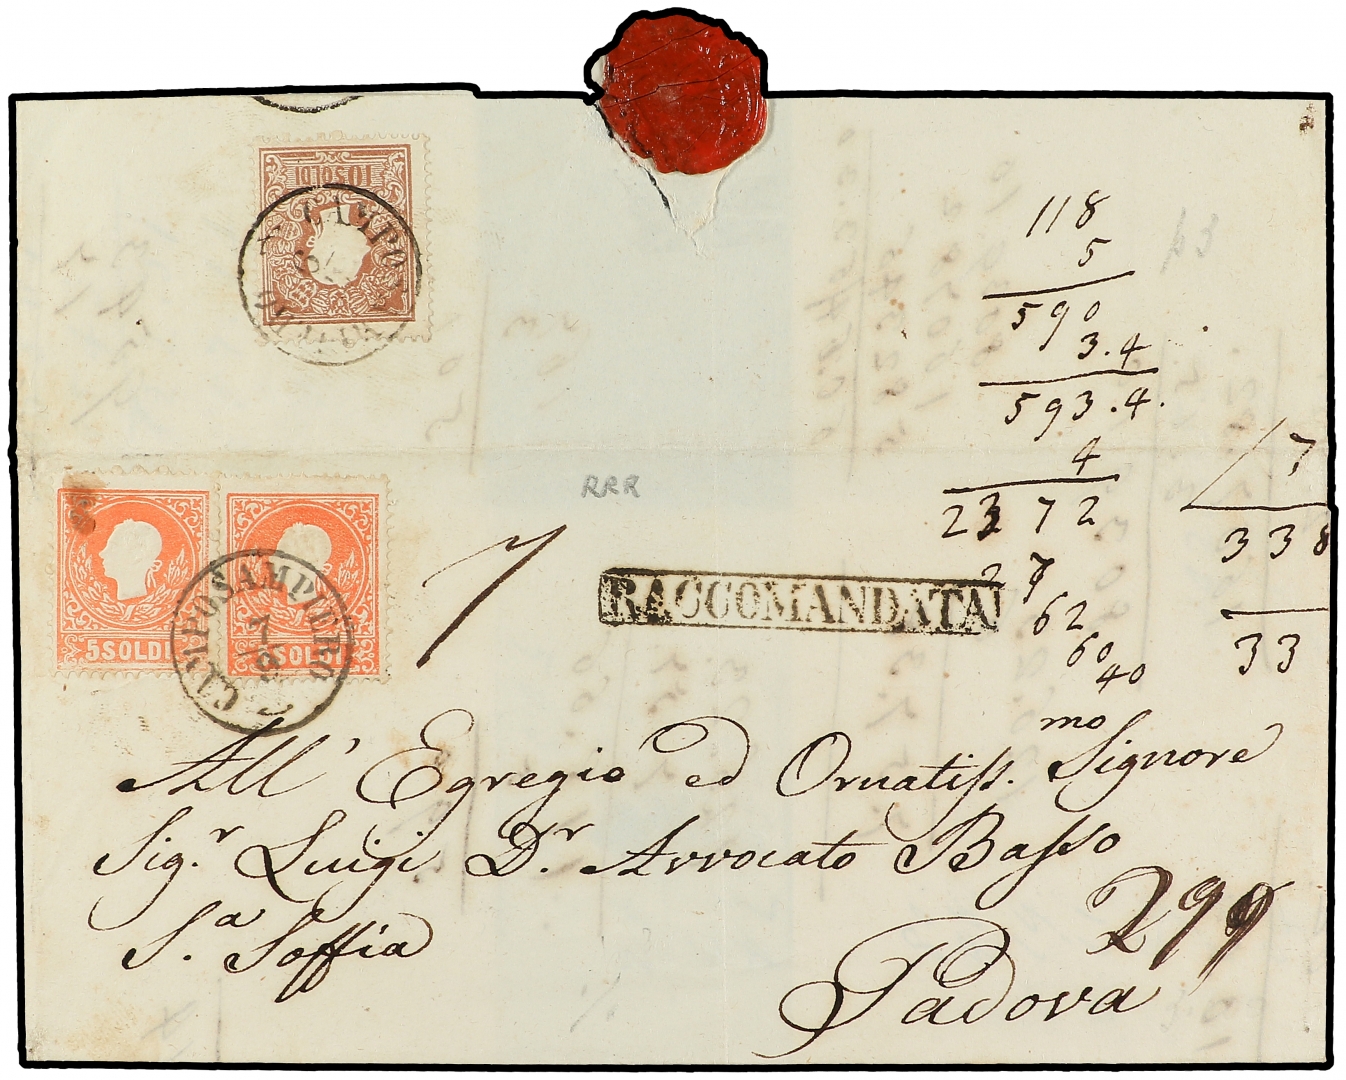 10 SOLDI
CAMPO
118
5
590
3.4
593.4.
4
2372
62
60
40
7
338
33
RRR
5 SOLDI
SOLDI
CAMPOSAMPIERO
7/8
7
RACCOMANDATA
All' Egregio ed Ornatiss.mo Signore
Sig.r Luigi D.r Avvocato Basso
S.a Soffia
299
Padova